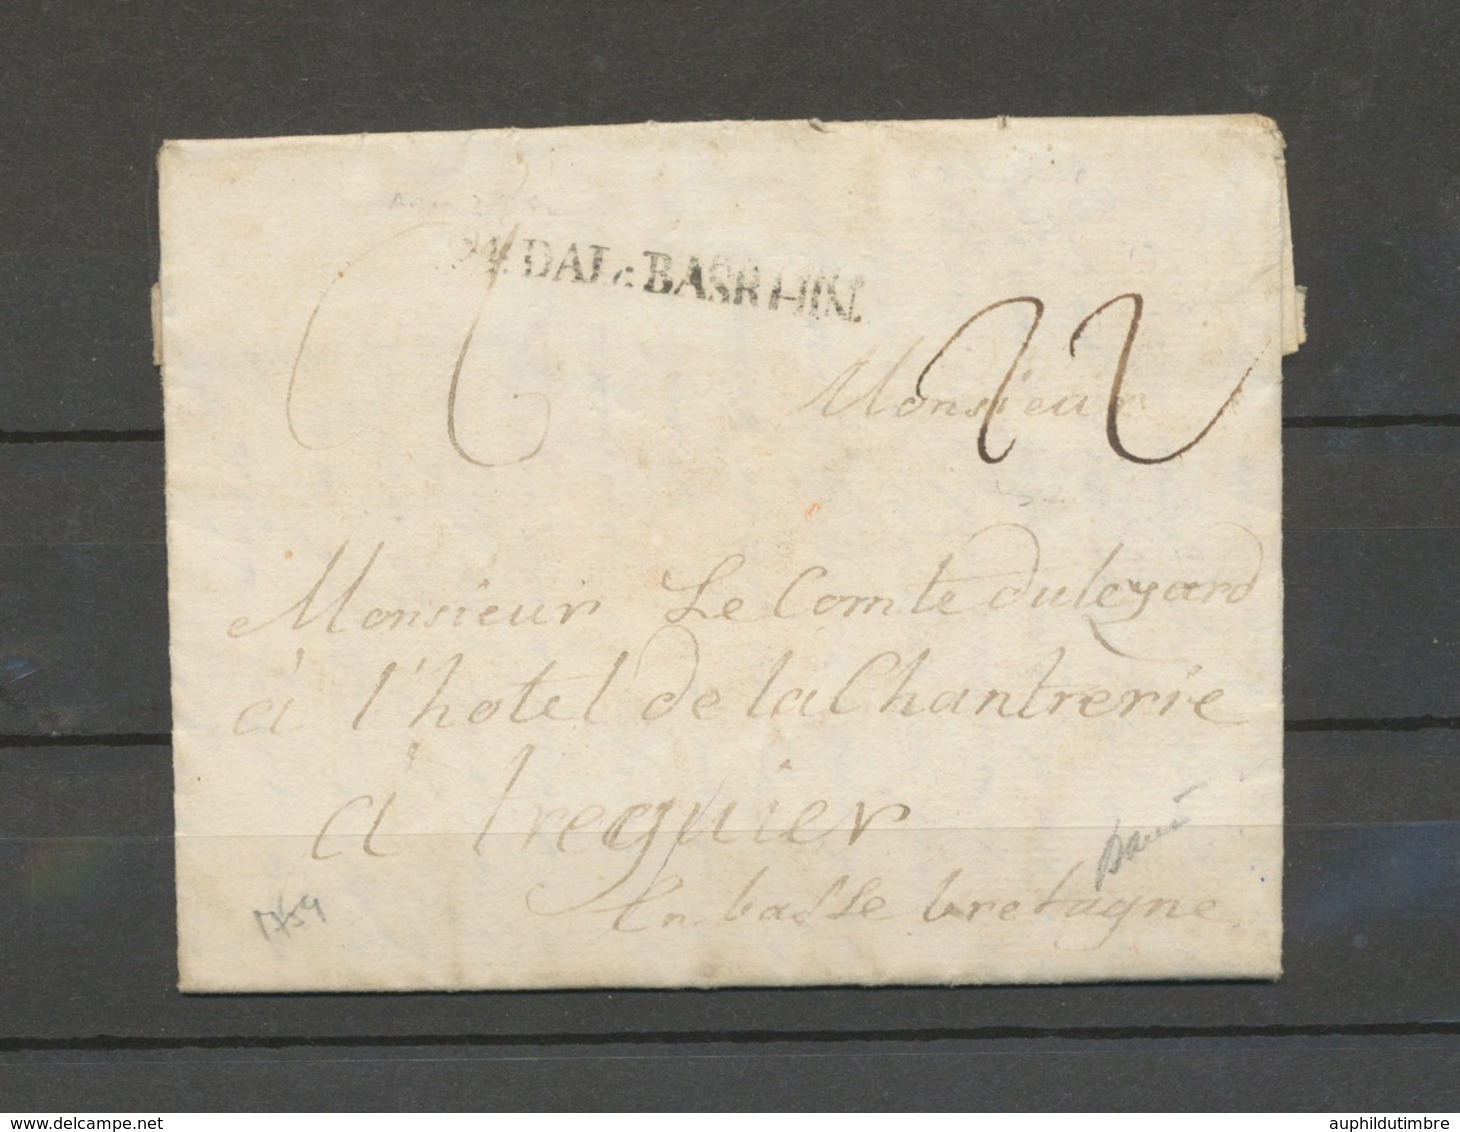 DAL. BASRHIN.
22
Monsieur
Monsieur Le Comte Dulezard
à l'hotel de la Chantrerie
à treguier
En basse bretagne
1759
auphildutimbre.com